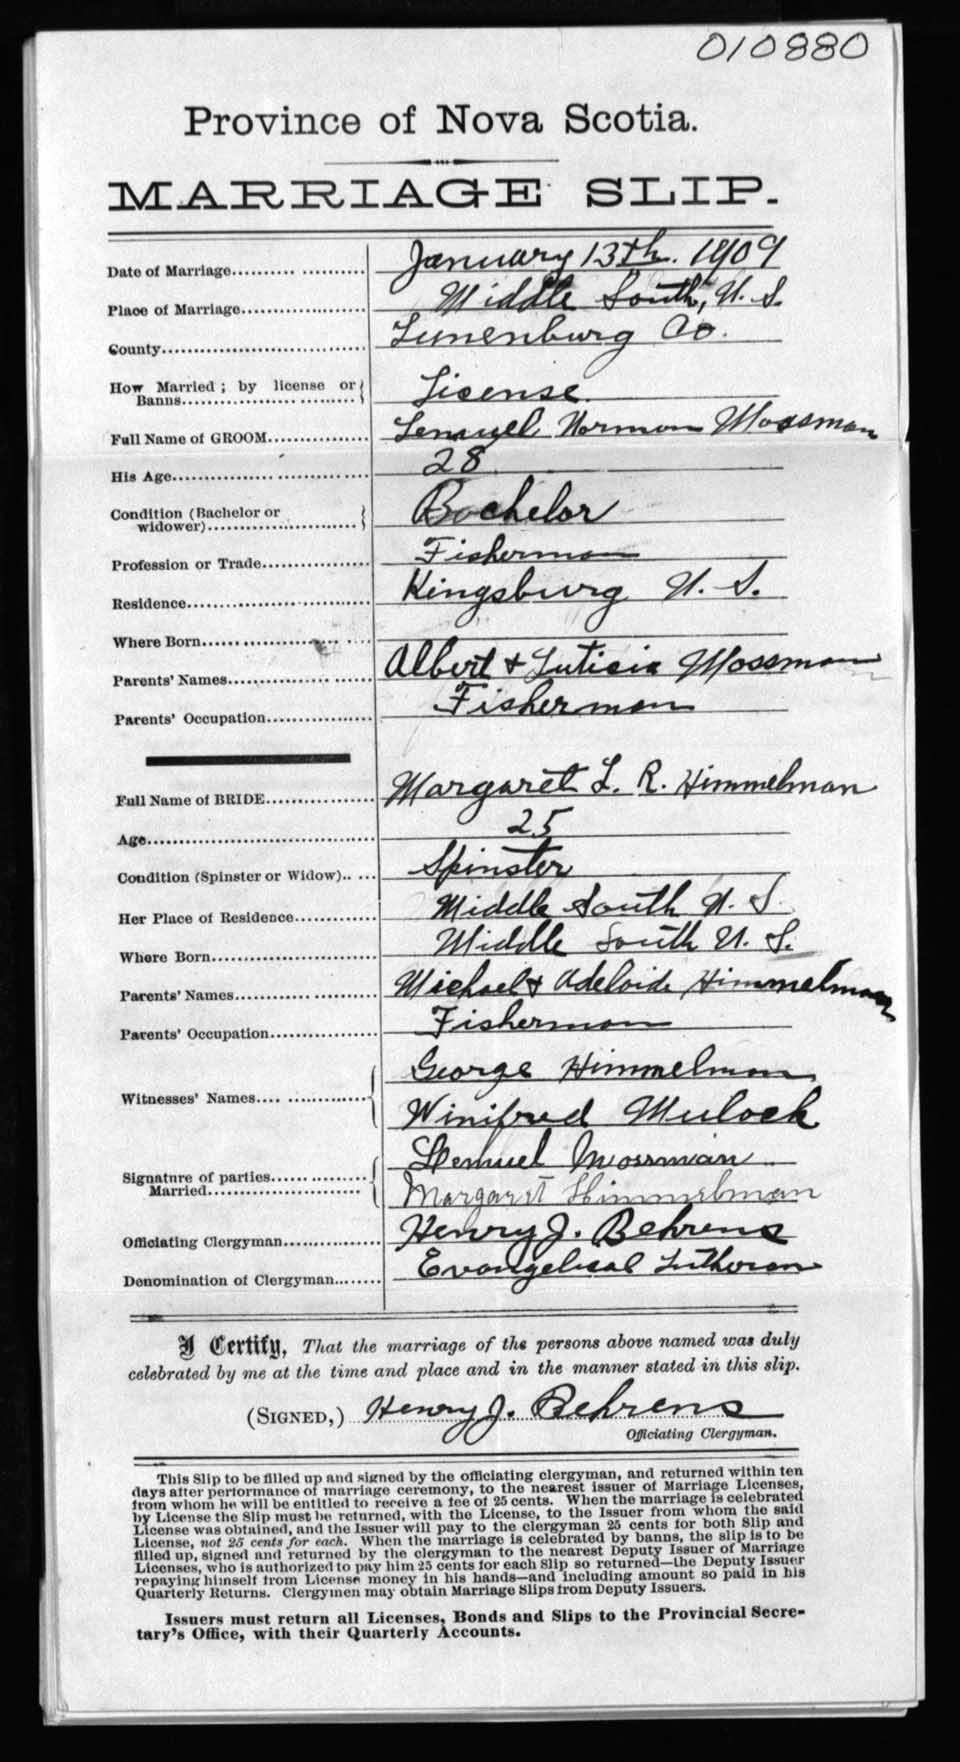 010880
Province of Nova Scotia.
MARRIAGE SLIP.
Date of Marriage.......... January 13th. 1909
Place of Marriage.......... Middle South, N. S.
County.......... Lunenburg Co.
How Married ; by license or Banns.......... License.
Full Name of GROOM.......... Lemuel Norman Mossman
His Age.......... 28
Condition (Bachelor or widower).......... Bachelor
Profession or Trade.......... Fisherman
Residence.......... Kingsburg N. S.
Where Born..........
Parents' Names.......... Albert & Luticia Mossman
Parents' Occupation.......... Fisherman
Full Name of BRIDE.......... Margaret L. R. Himmelman
Age.......... 25
Condition (Spinster or Widow)..... Spinster
Her Place of Residence.......... Middle South N. S.
Where Born.......... Middle South N. S.
Parents' Names.......... Michael & Adelaide Himmelman
Parents' Occupation.......... Fisherman
Witnesses' Names.......... George Himmelman
Winifred Mulock
Signature of parties Married.......... Lemuel Mossman
Margaret Himmelman
Officiating Clergyman.......... Henry J. Behrens
Denomination of Clergyman........ Evangelical Lutheran
I Certify, That the marriage of the persons above named was duly
celebrated by me at the time and place and in the manner stated in this slip.
(SIGNED,) Henry J. Behrens
Officiating Clergyman.
This Slip to be filled up and signed by the officiating clergyman, and returned within ten
days after performance of marriage ceremony, to the nearest issuer of Marriage Licenses,
from whom he will be entitled to receive a fee of 25 cents. When the marriage is celebrated
by License the Slip must be returned, with the License, to the Issuer from whom the said
License was obtained, and the Issuer will pay to the clergyman 25 cents for both Slip and
License, not 25 cents for each. When the marriage is celebrated by banns, the slip is to be
filled up, signed and returned by the clergyman to the nearest Deputy Issuer of Marriage
Licenses, who is authorized to pay him 25 cents for each Slip so returned—the Deputy Issuer
repaying himself from License money in his hands—and including amount so paid in his
Quarterly Returns. Clergymen may obtain Marriage Slips from Deputy Issuers.
Issuers must return all Licenses, Bonds and Slips to the Provincial Secre-
tary's Office, with their Quarterly Accounts.